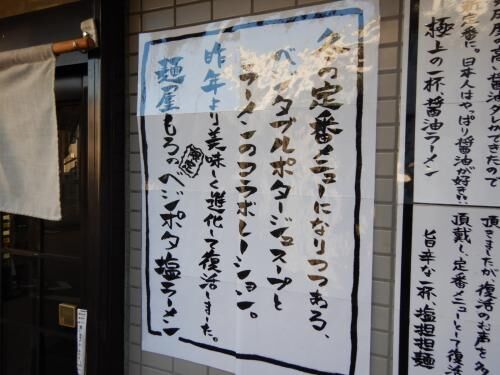 冬の定番メニューになりつつある、
ベジタブルポタージュスープと
ラーメンのコラボレーション。
昨年より美味しく進化して復活しました。
麺屋もろのベジポタ塩ラーメン
限定
定番に。日本人はやっぱり醤油が好き
極上の一杯、醤油ラーメン
頂きましたが、復活のお声を多
頂戴し、定番メニューとして復活
旨辛な一杯、塩担担麺